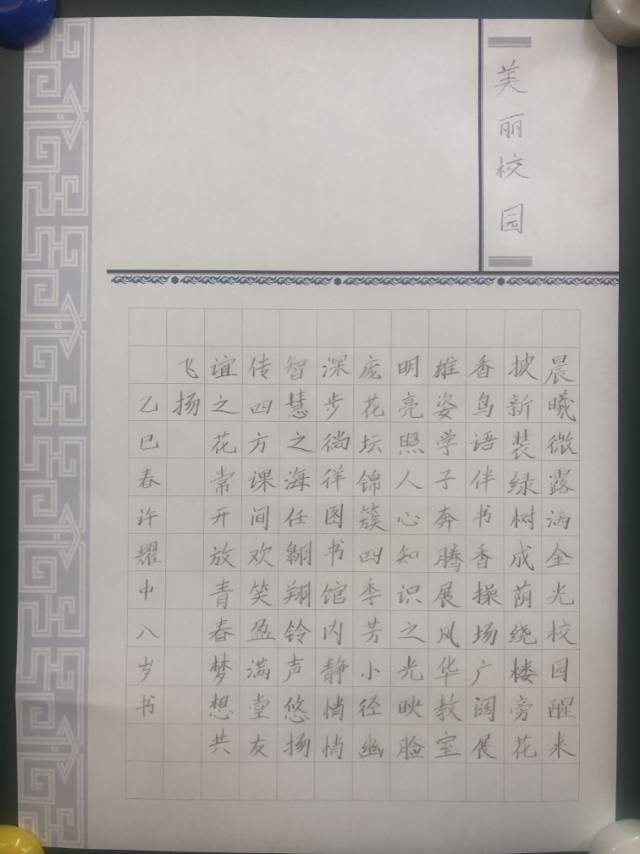 美丽校园
晨曦微露洒全光校园醒来
披新装绿树成荫绕楼旁花
香鸟语伴书香操场广阔展
雄姿学子奔腾展风华教室
明亮照人心知识之光映脸
庞花坛锦簇四季芳小径幽
深步徜徉图书馆内静悄悄
智慧之海任翱翔铃声悠扬
传四方课间欢笑盈满堂友
谊之花常开放青春梦想共
飞扬
乙巳春许耀中八岁书